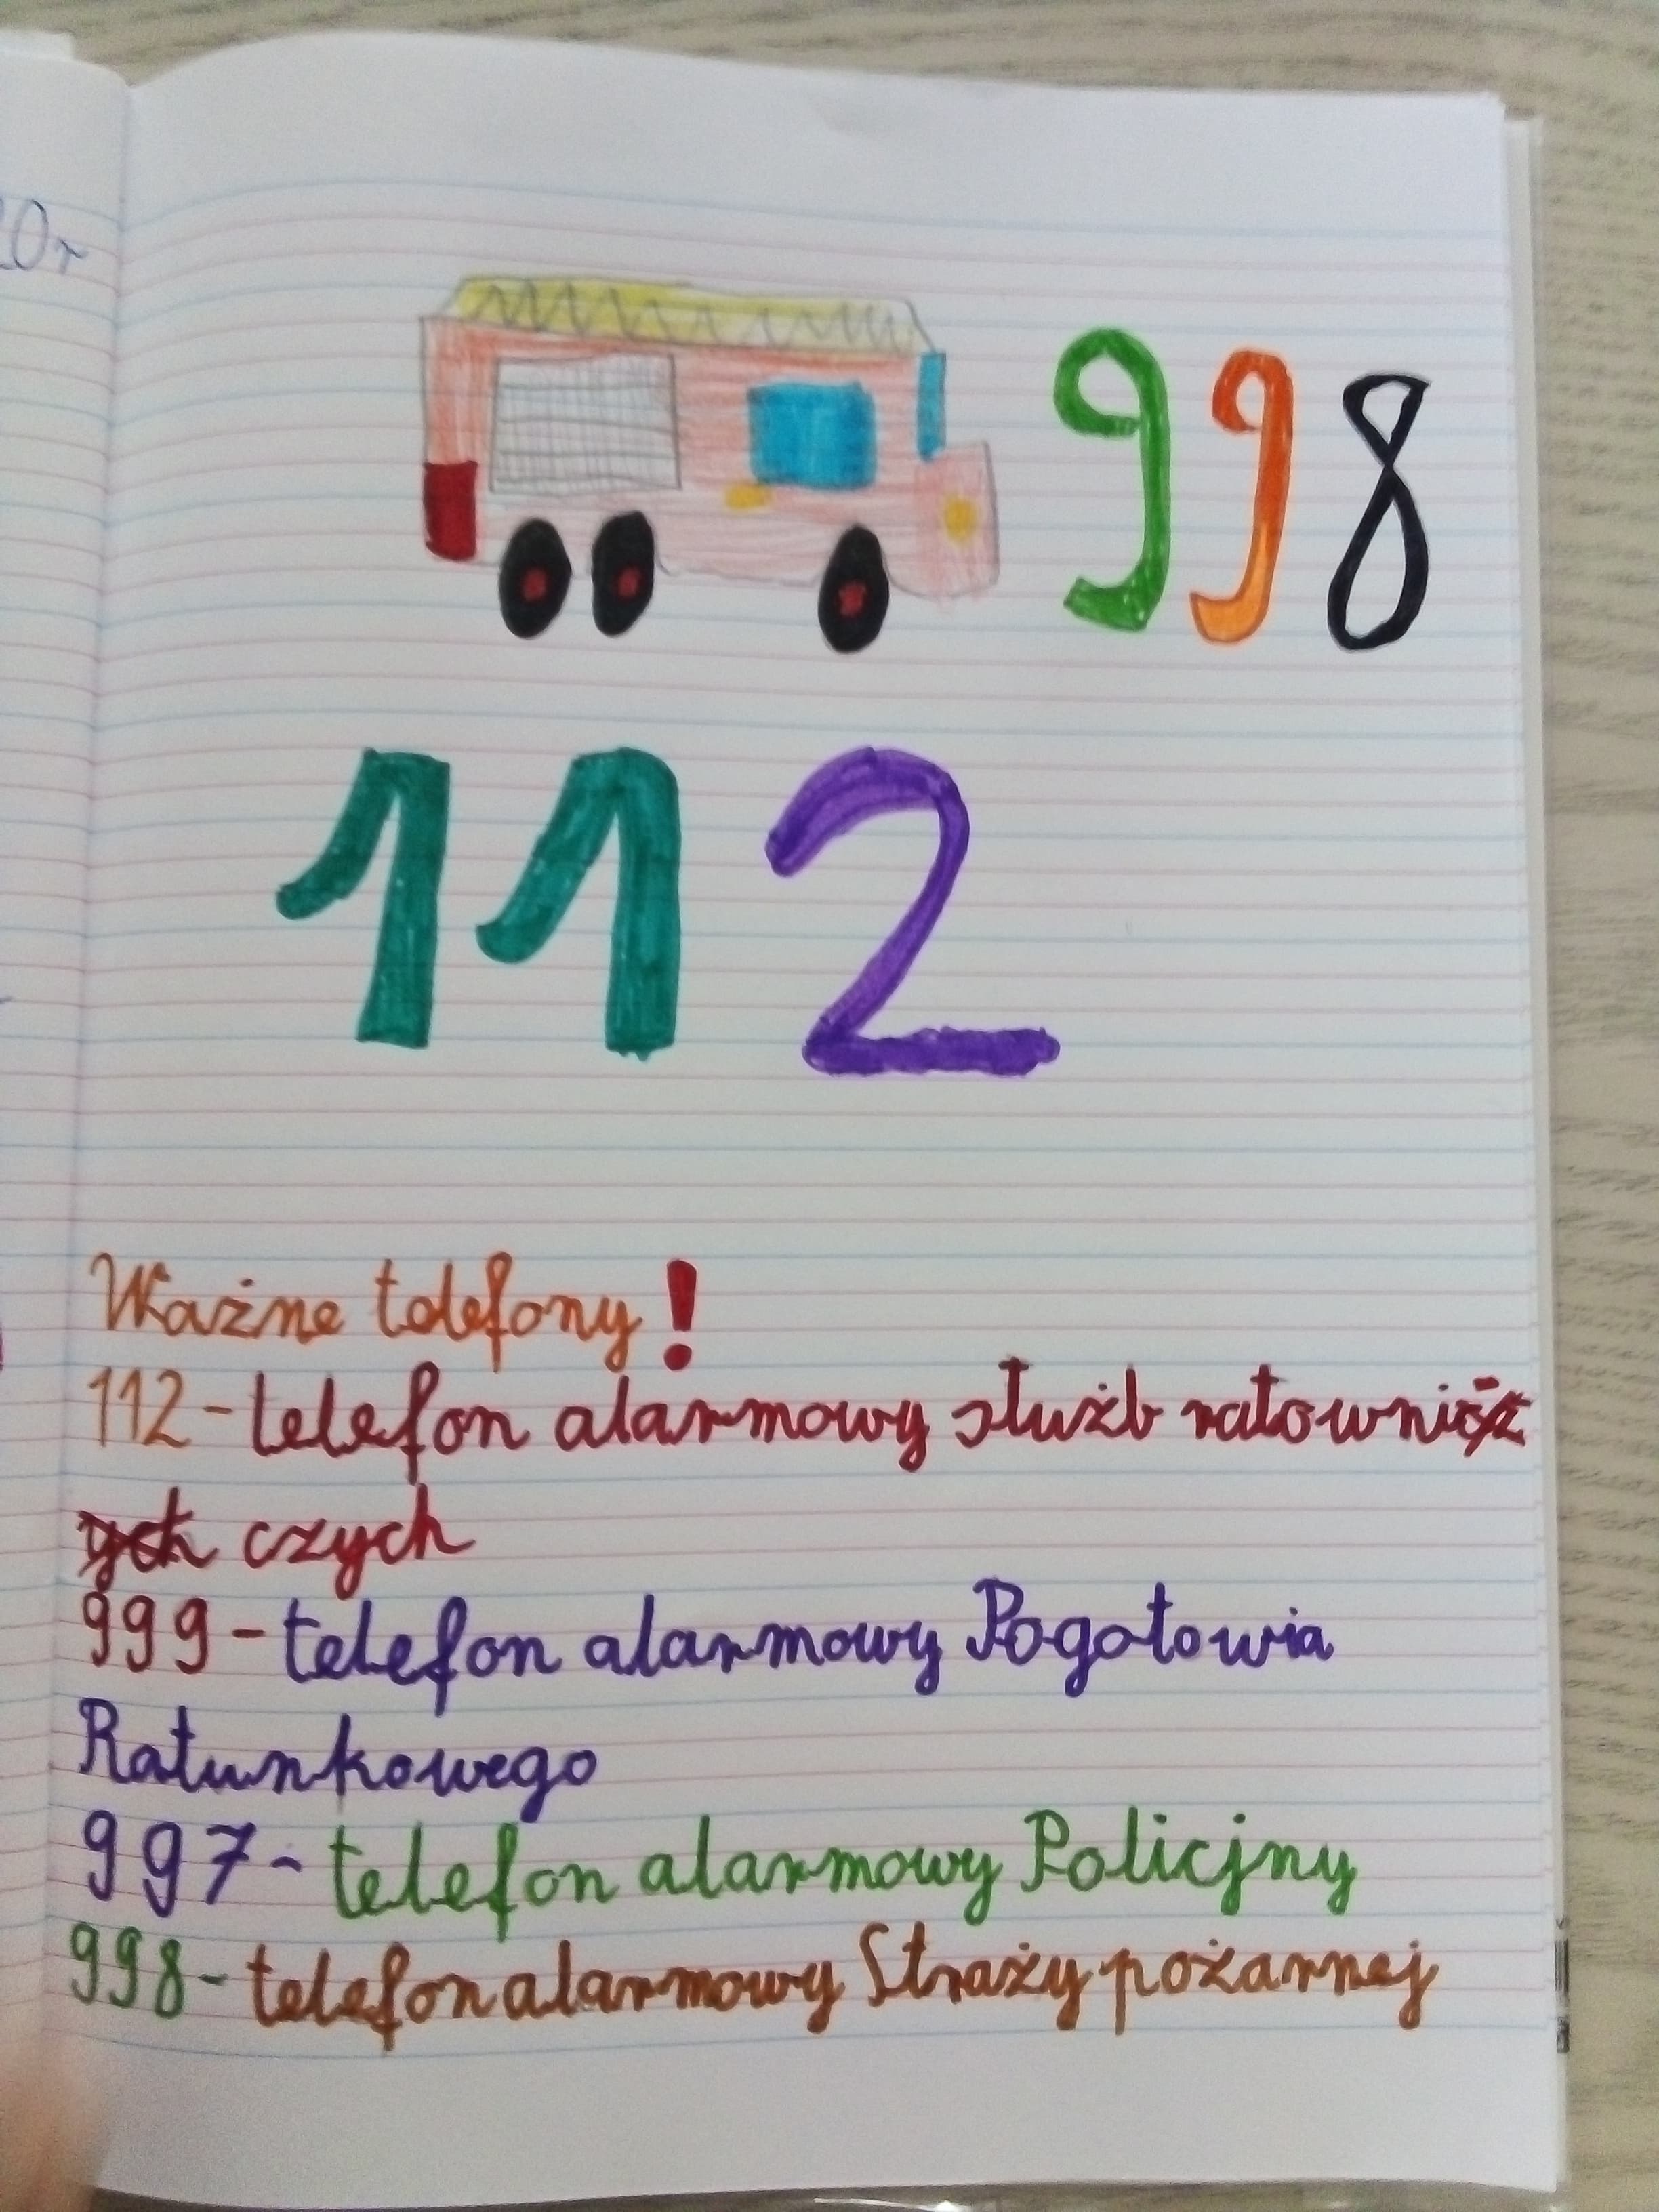 20r
998
112
Ważne telefony!
112-telefon alarmowy służb ratownicz
ych czych
999-telefon alarmowy Pogotowia
Ratunkowego
997-telefon alarmowy Policjny
998-telefon alarmowy Straży pożarnej